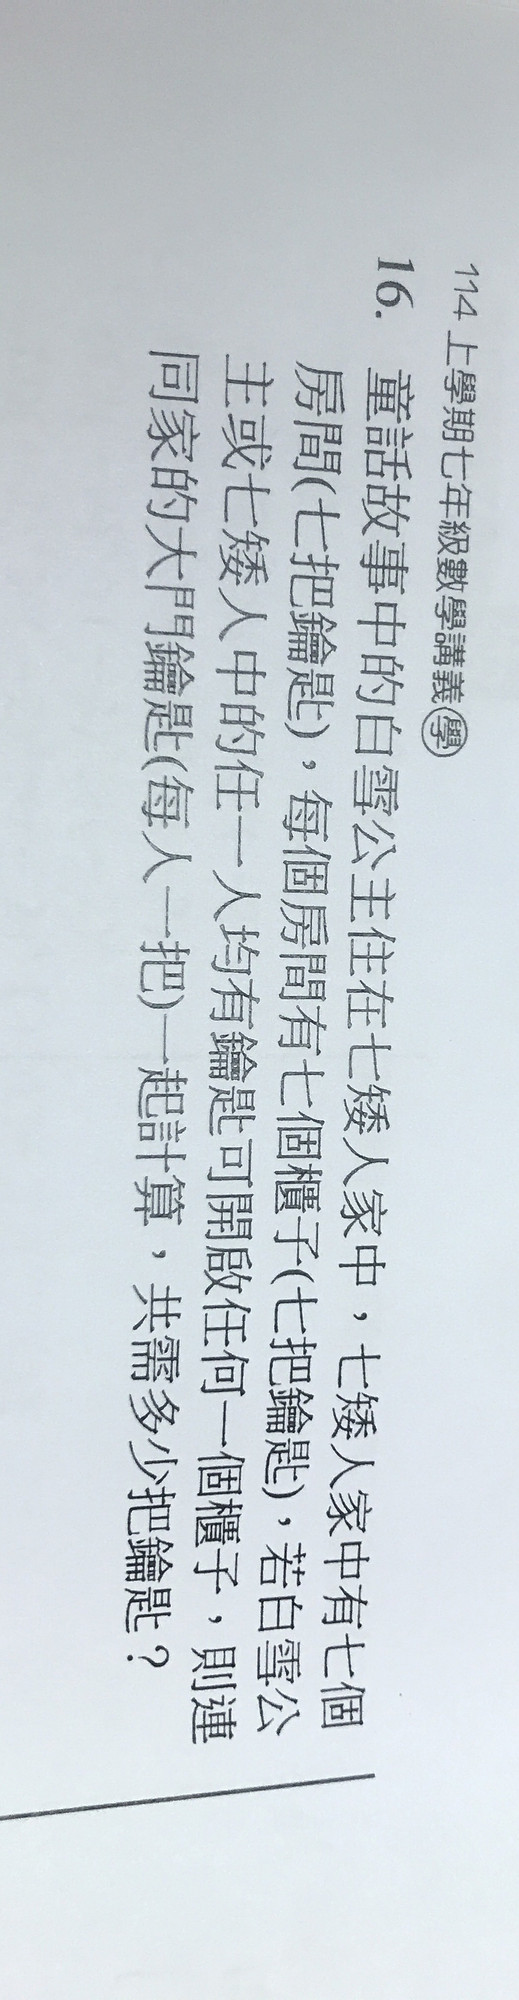 114 上學期七年級數學講義學
16. 童話故事中的白雪公主住在七矮人家中，七矮人家中有七個
房間(七把鑰匙)，每個房間有七個櫃子(七把鑰匙)，若白雪公
主或七矮人中的任一人均有鑰匙可開啟任何一個櫃子，則連
同家的大門鑰匙(每人一把)一起計算，共需多少把鑰匙？